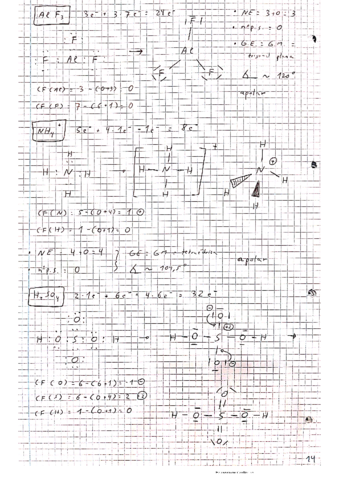 AlF3 3e⁻ + 3·7e⁻ = 24e⁻
• NE = 3+0 = 3
• nºp.s. = 0
• GE = GM =
∡ ~ 120º
apolar
F
F Al F
F
Al
F F
CF(Al) = 3-(0+3) = 0
CF(F) = 7-(6+1) = 0
NH4⁺ 5e⁻ + 4·1e⁻ - 1e⁻ = 8e⁻
H
H N H
H
H
H-N-H
H
+
H
N ⊕
H H
H
CF(N) = 5-(0+4) = 1 ⊕
CF(H) = 1-(0+1) = 0
• NE = 4+0 = 4
• nºp.s. = 0
GE = GM =
∡ ~ 109,5º
apolar
H2SO4 2·1e⁻ + 6e⁻ + 4·6e⁻ = 32e⁻
O
H O S O H
O
O
H-O-S-O-H
O
CF(O) = 6-(6+1) = -1 ⊖
CF(S) = 6-(0+4) = 2
CF(H) = 1-(0+1) = 0
O
H-O-S-O-H
O
14